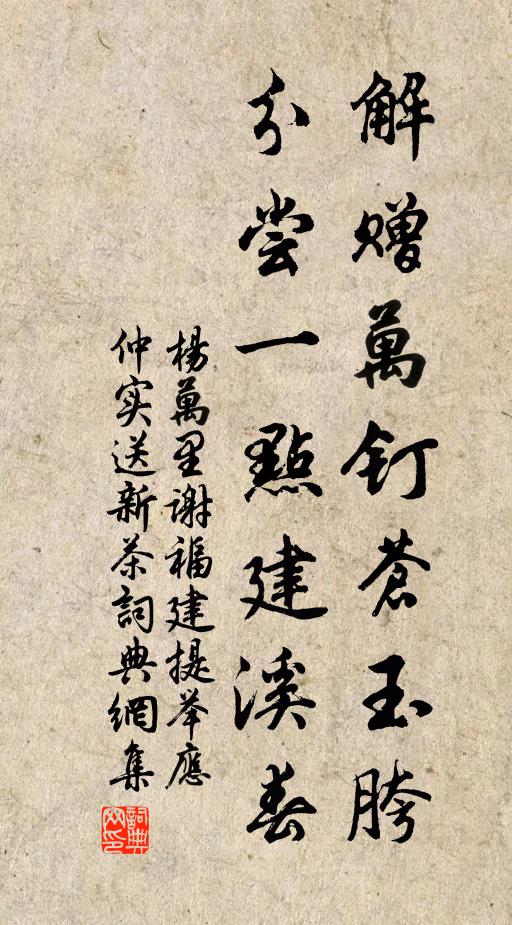 解贈萬釘蒼玉胯
分嘗一點建溪春
楊萬里謝福建提举應
仲实送新茶詞典網集
詞典网印